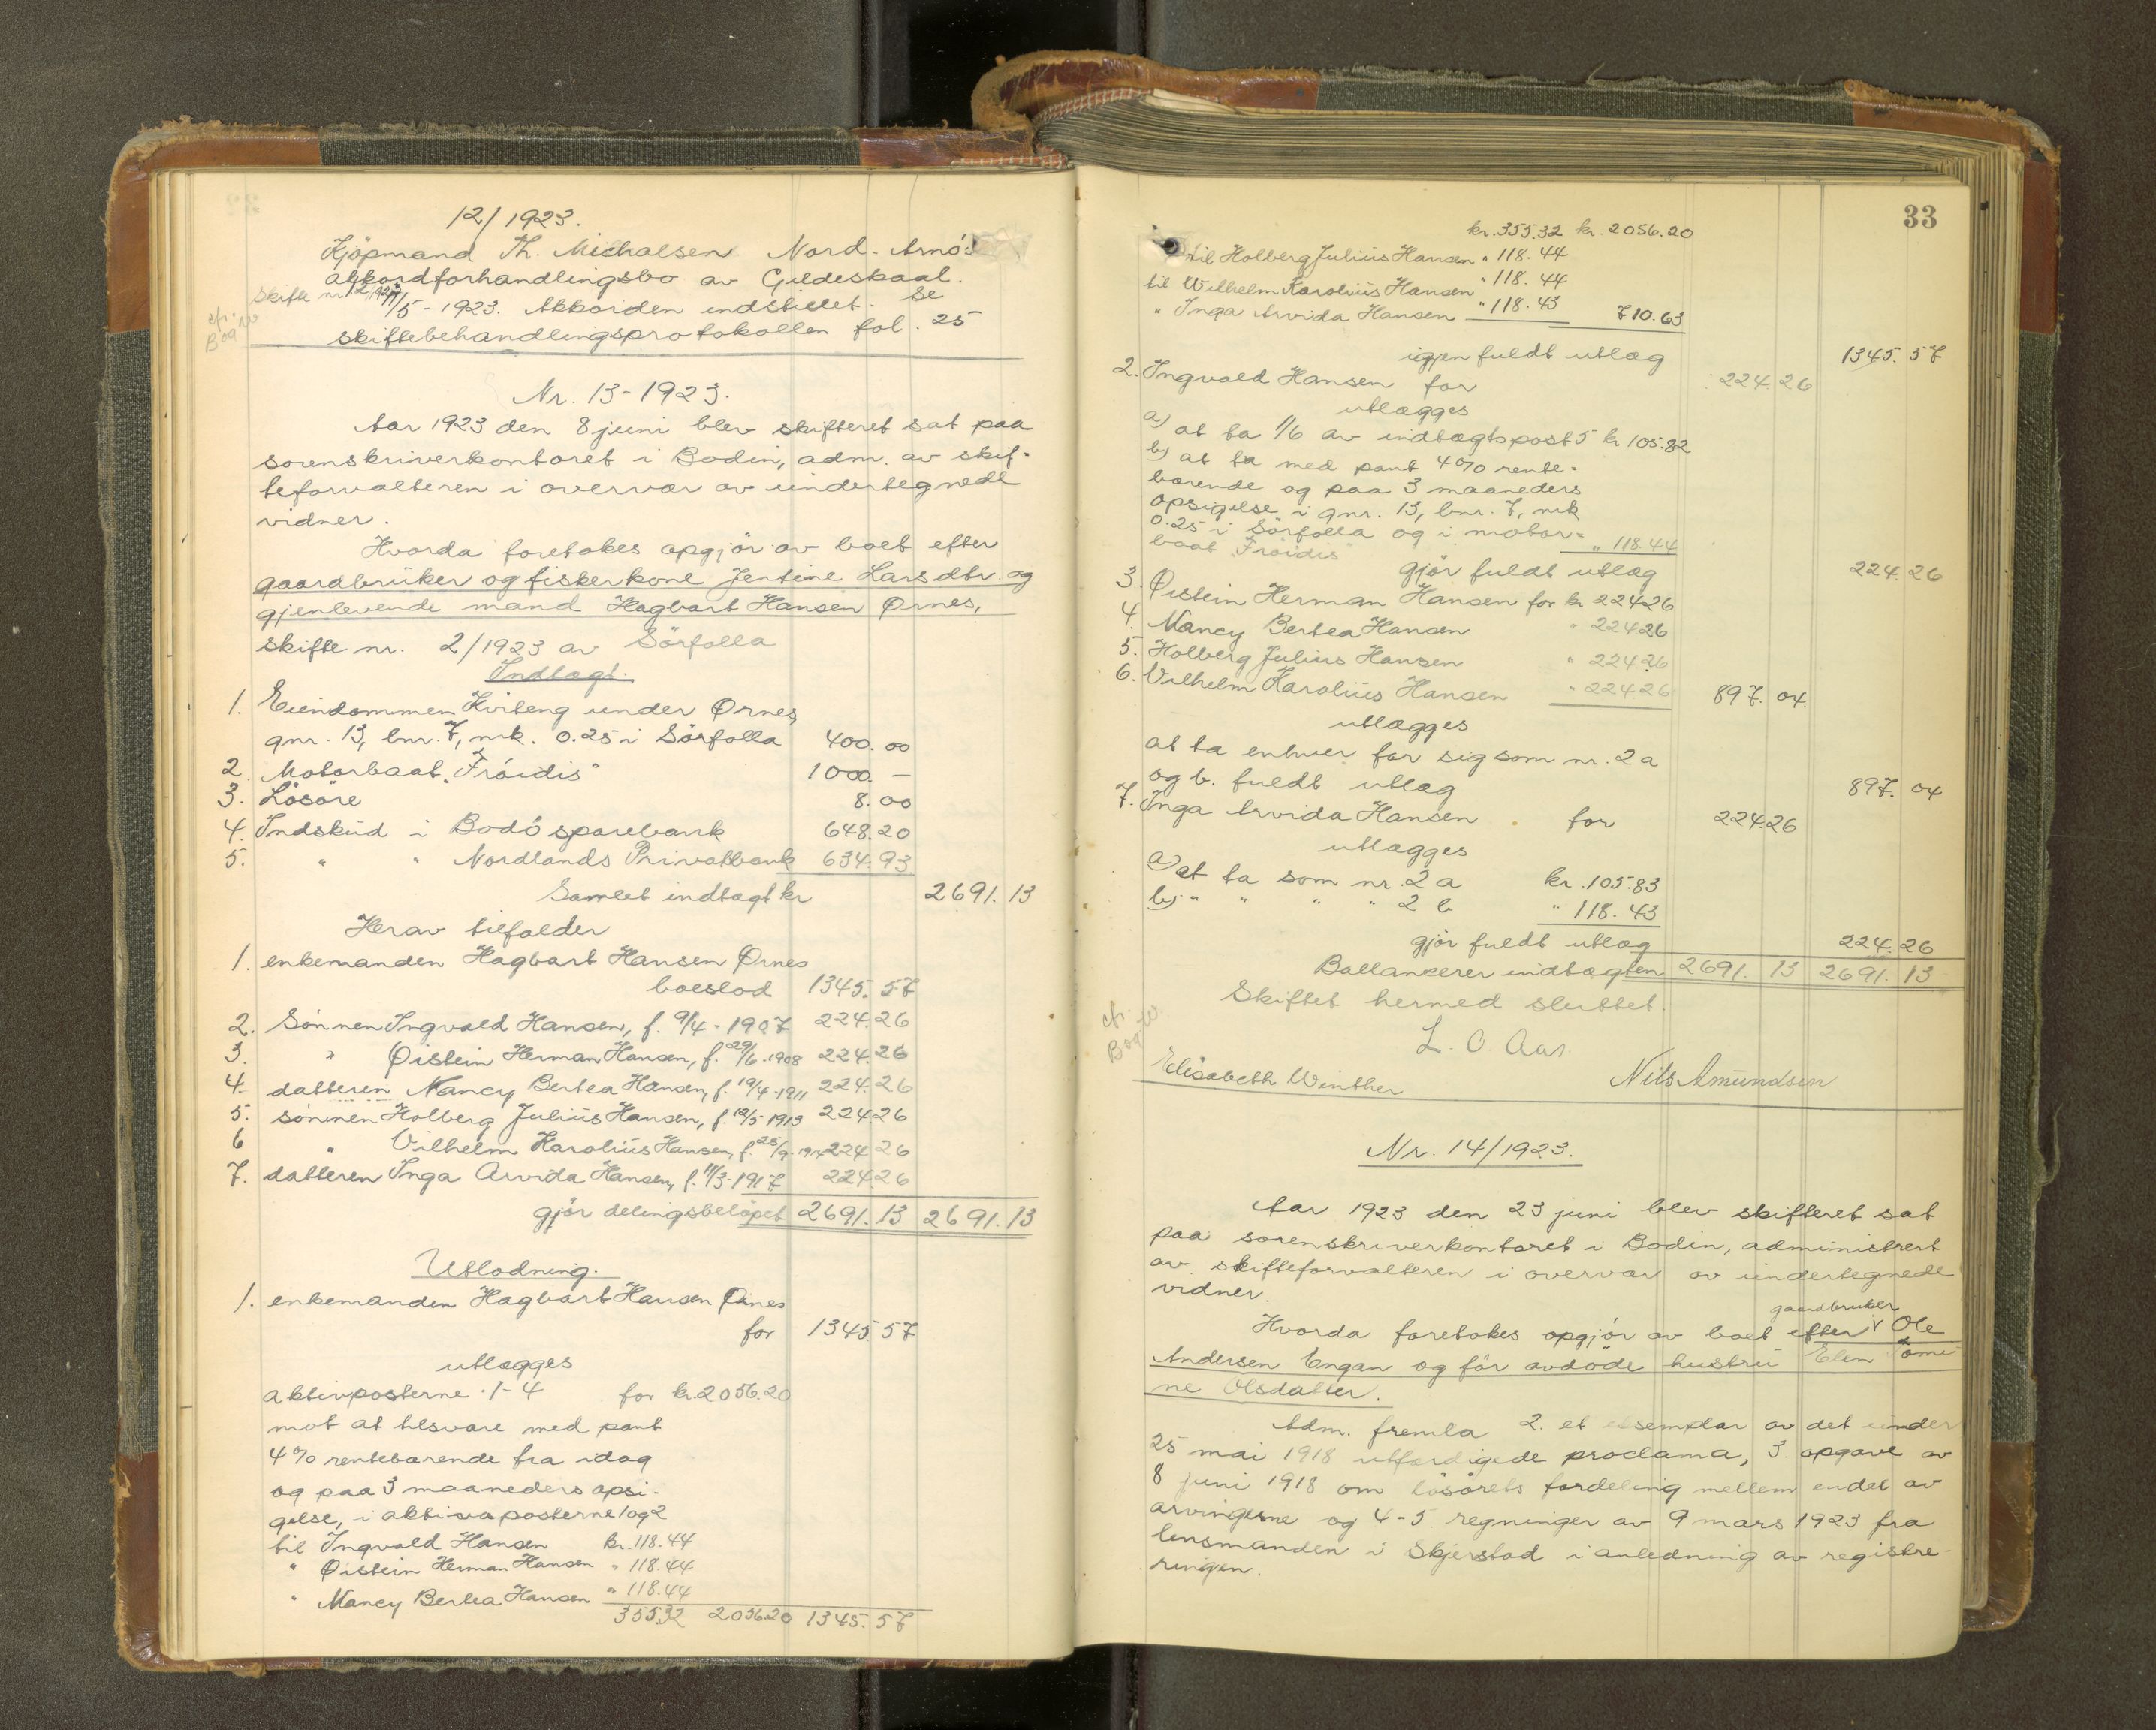 12/1923.
Kjöpmand Th. Michalsen Nord-Arnö's
akkordforhandlingsbo av Gildeskaal.
Skifte nr 12/1923
11/5-1923. Akkorden indstillet. Se
skiftebehandlingsprotokollen fol. 25
cfr.
Bog
Nr. 13-1923.
Aar 1923 den 8 juni blev skifteret sat paa
sorenskriverkontoret i Bodin, adm. av skif-
teforvalteren i overvær av undertegnede
vidner.
Hvorda foretokes opgjör av boet efter
gaardbruker og fiskerkone Jentine Larsdtr. og
gjenlevende mand Hagbart Hansen Ørnes,
skifte nr. 2/1923 av Sörfolla
Indtægt.
1. Eiendommen Hviteng under Ørnes,
gnr. 13, bnr. 7, mrk. 0.25 i Sörfolla 400.00
2. Motorbaat "Fröidis" 1000.—
3. Lösöre 8.00
4. Indskud i Bodö sparebank 648.20
5. " " Nordlands Privatbank 634.93
Samlet indtægt kr 2691.13
Herav tilfalder
1. enkemanden Hagbart Hansen Ørnes
boeslod 1345.57
2. Sönnen Ingvald Hansen, f. 9/4-1907 224.26
3. " Øistein Herman Hansen, f. 29/6-1908 224.26
4. datteren Nancy Bertea Hansen, f. 19/4-1911 224.26
5. sönnen Holberg Julius Hansen, f. 12/5-1913 224.26
6 " Vilhelm Karolius Hansen, f. 25/9-1914 224.26
7. datteren Inga Arvida Hansen, f. 11/3-1917 224.26
gjör delingsbelöpet 2691.13 2691.13
Utlodning.
1. enkemanden Hagbart Hansen Ørnes
for 1345.57
utlægges
aktivposterne 1-4 for kr. 2056.20
mot at tilsvare med pant
4% rentebærende fra idag
og paa 3 maaneders opsi-
gelse, i aktivaposterne 1 og 2
til Ingvald Hansen kr. 118.44
" Øistein Herman Hansen " 118.44
" Nancy Bertea Hansen " 118.44
355.32 2056.20 1345.57
33
kr. 355.32 kr. 2056.20
til Holberg Julius Hansen " 118.44
til Wilhelm Karolius Hansen " 118.44
" Inga Arvida Hansen " 118.43 710.63
igjen fuldt utlæg 1345.57
2. Ingvald Hansen for 224.26
utlægges
a) at ta 1/6 av indtægtspost 5 kr 105.82
b) at ta med pant 4% rente-
bærende og paa 3 maaneders
opsigelse i gnr. 13, bnr. 7, mrk
0.25 i Sörfolla og i motor-
baat "Fröidis" " 118.44
gjör fuldt utlæg 224.26
3. Øistein Herman Hansen for kr 224.26
4. Nancy Bertea Hansen " 224.26
5. Holberg Julius Hansen " 224.26
6. Vilhelm Karolius Hansen " 224.26 897.04.
utlægges
at ta enhver for sig som nr. 2 a
og b. fuldt utlæg 897.04
7. Inga Arvida Hansen for 224.26
utlægges
a) at ta som nr. 2 a kr. 105.83
b) " " " " 2 b " 118.43
gjör fuldt utlæg 224.26
Ballancerer indtægten 2691.13 2691.13
Skiftet hermed sluttet.
cfr.
Bog
L. O. Aas.
Elisabeth Winther Nils Amundsen
Nr. 14/1923.
Aar 1923 den 23 juni blev skifteret sat
paa sorenskriverkontoret i Bodin, administrert
av skifteforvalteren i overvær av undertegnede
vidner.
gaardbruker
Hvorda foretokes opgjör av boet efter Ole
Andersen Engan og för avdöde hustru Elen Tomi-
ne Olsdatter.
Adm. fremla 2. et eksemplar av det under
25 mai 1918 utfærdigede proclama, 3 opgave av
8 juni 1918 om lösörets fordeling mellem endel av
arvingerne og 4-5 regninger av 9 mars 1923 fra
lensmanden i Skjerstad i anledning av registre-
ringen.